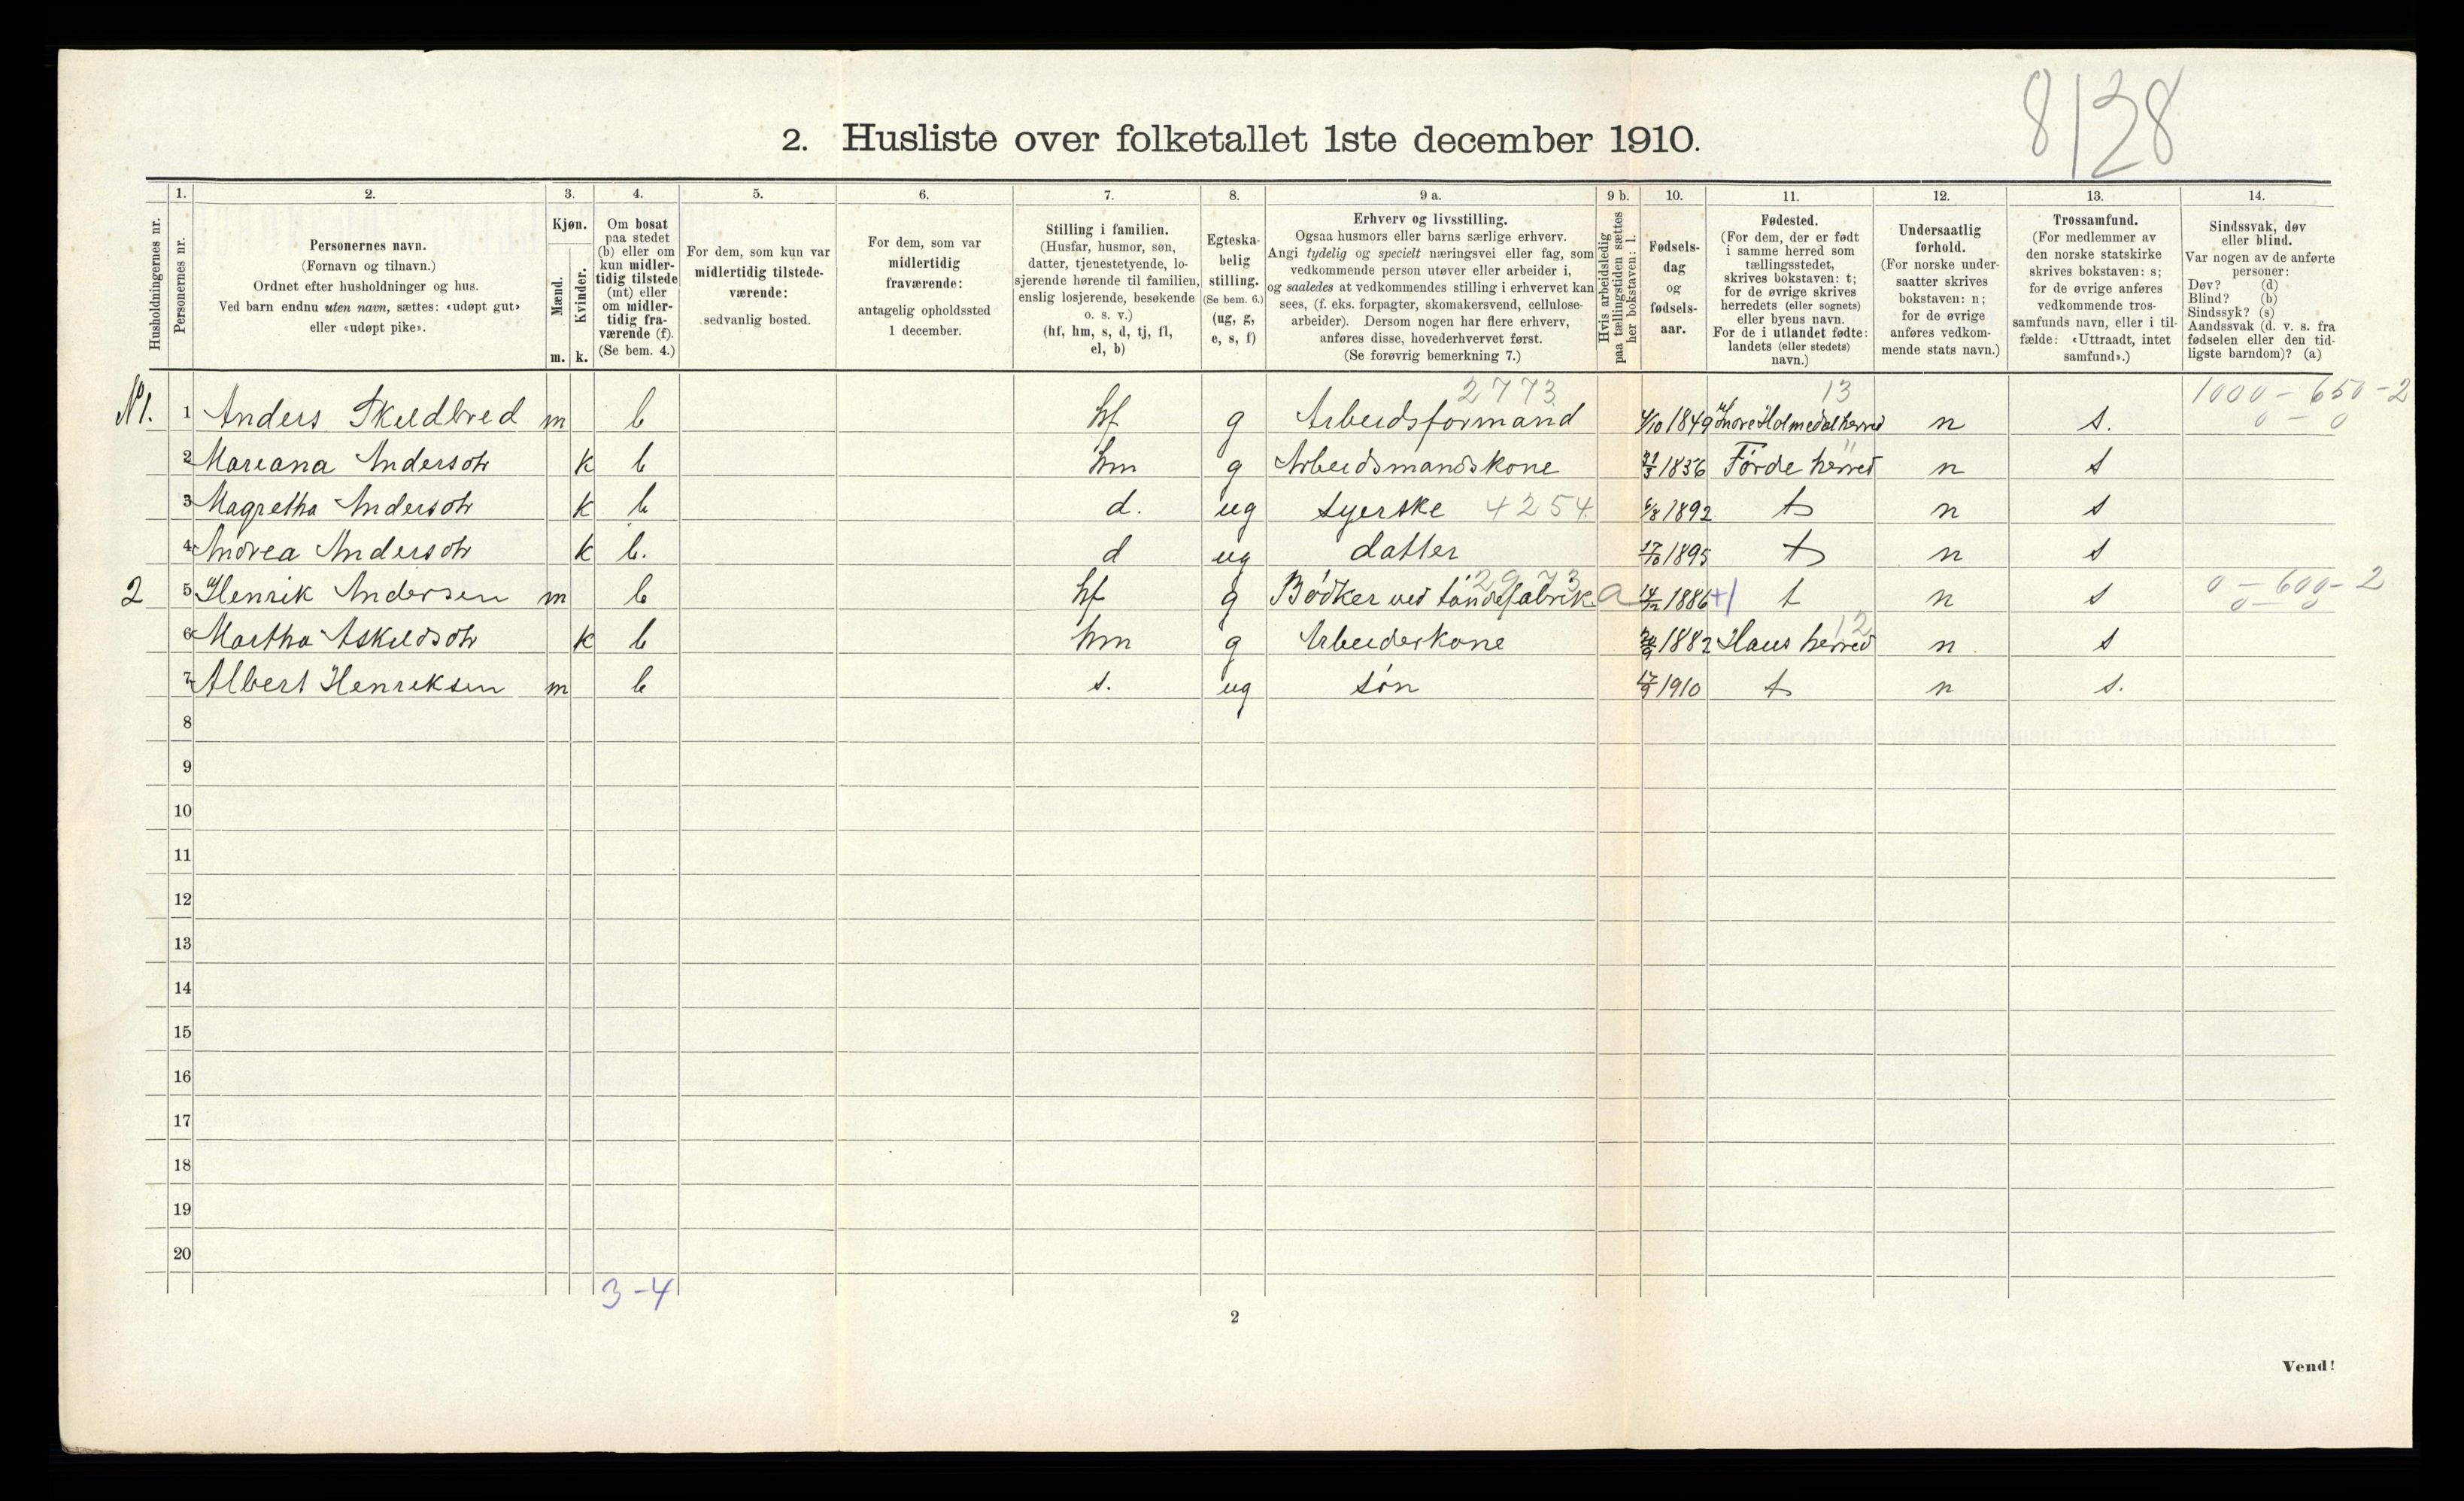 8128
2. Husliste over folketallet 1ste december 1910.
Husholdningernes nr.
1.
Personernes nr.
2.
Personernes navn.
(Fornavn og tilnavn.)
Ordnet efter husholdninger og hus.
Ved barn endnu uten navn, sættes: «udøpt gut»
eller «udøpt pike».
3.
Kjøn.
Mænd. Kvinder.
m. k.
4.
Om bosat
paa stedet
(b) eller om
kun midler-
tidig tilstede
(mt) eller
om midler-
tidig fra-
værende (f).
(Se bem. 4.)
5.
For dem, som kun var
midlertidig tilstede-
værende:
sedvanlig bosted.
6.
For dem, som var
midlertidig
fraværende:
antagelig opholdssted
1 december.
7.
Stilling i familien.
(Husfar, husmor, søn,
datter, tjenestetyende, lo-
sjerende hørende til familien,
enslig losjerende, besøkende
o. s. v.)
(hf, hm, s, d, tj, fl,
el, b)
8.
Egteska-
belig
stilling.
(Se bem. 6.)
(ug, g,
e, s, f)
9 a.
Erhverv og livsstilling.
Ogsaa husmors eller barns særlige erhverv.
Angi tydelig og specielt næringsvei eller fag, som
vedkommende person utøver eller arbeider i,
og saaledes at vedkommendes stilling i erhvervet kan
sees, (f. eks. forpagter, skomakersvend, cellulose-
arbeider). Dersom nogen har flere erhverv,
anføres disse, hovederhvervet først.
(Se forøvrig bemerkning 7.)
9 b.
Hvis arbeidsledig
paa tællingstiden sættes
her bokstaven: l.
10.
Fødsels-
dag
og
fødsels-
aar.
11.
Fødested.
(For dem, der er født
i samme herred som
tællingsstedet,
skrives bokstaven: t;
for de øvrige skrives
herredets (eller sognets)
eller byens navn.
For de i utlandet fødte:
landets (eller stedets)
navn.)
12.
Undersaatlig
forhold.
(For norske under-
saatter skrives
bokstaven: n;
for de øvrige
anføres vedkom-
mende stats navn.)
13.
Trossamfund.
(For medlemmer av
den norske statskirke
skrives bokstaven: s;
for de øvrige anføres
vedkommende tros-
samfunds navn, eller i til-
fælde: «Uttraadt, intet
samfund».)
14.
Sindssvak, døv
eller blind.
Var nogen av de anførte
personer:
Døv? (d)
Blind? (b)
Sindssyk? (s)
Aandssvak (d. v. s. fra
fødselen eller den tid-
ligste barndom)? (a)
2773 13 1000 - 650 - 2
N1. 1 Anders Skildbred m b hf g Arbeidsformand 4/10 1849 Indre Holmedal herred n s. 0 - 0
2 Mareana Andersdtr k b hm g Arbeidsmandskone 31/3 1856 Førde herred " n s
3 Magretha Andersdtr k b d. ug syerske 4254 6/8 1892 t n s
4 Andrea Andersdtr k b. d ug datter 17/10 1895 t n s
2 5 Henrik Andersen m b hf g Bødker ved tøndefabrik. 2973 a 14/12 1886 +1 t n s 0 - 600 - 2
0 - 0
6 Martha Askildsdtr k b hm g Arbeiderkone 20/9 1882 Haus herred 12 n s
7 Albert Henreksen m b s. ug søn 17/9 1910 t n s.
8
9
10
11
12
13
14
15
16
17
18
19
20
3-4
2
Vend!